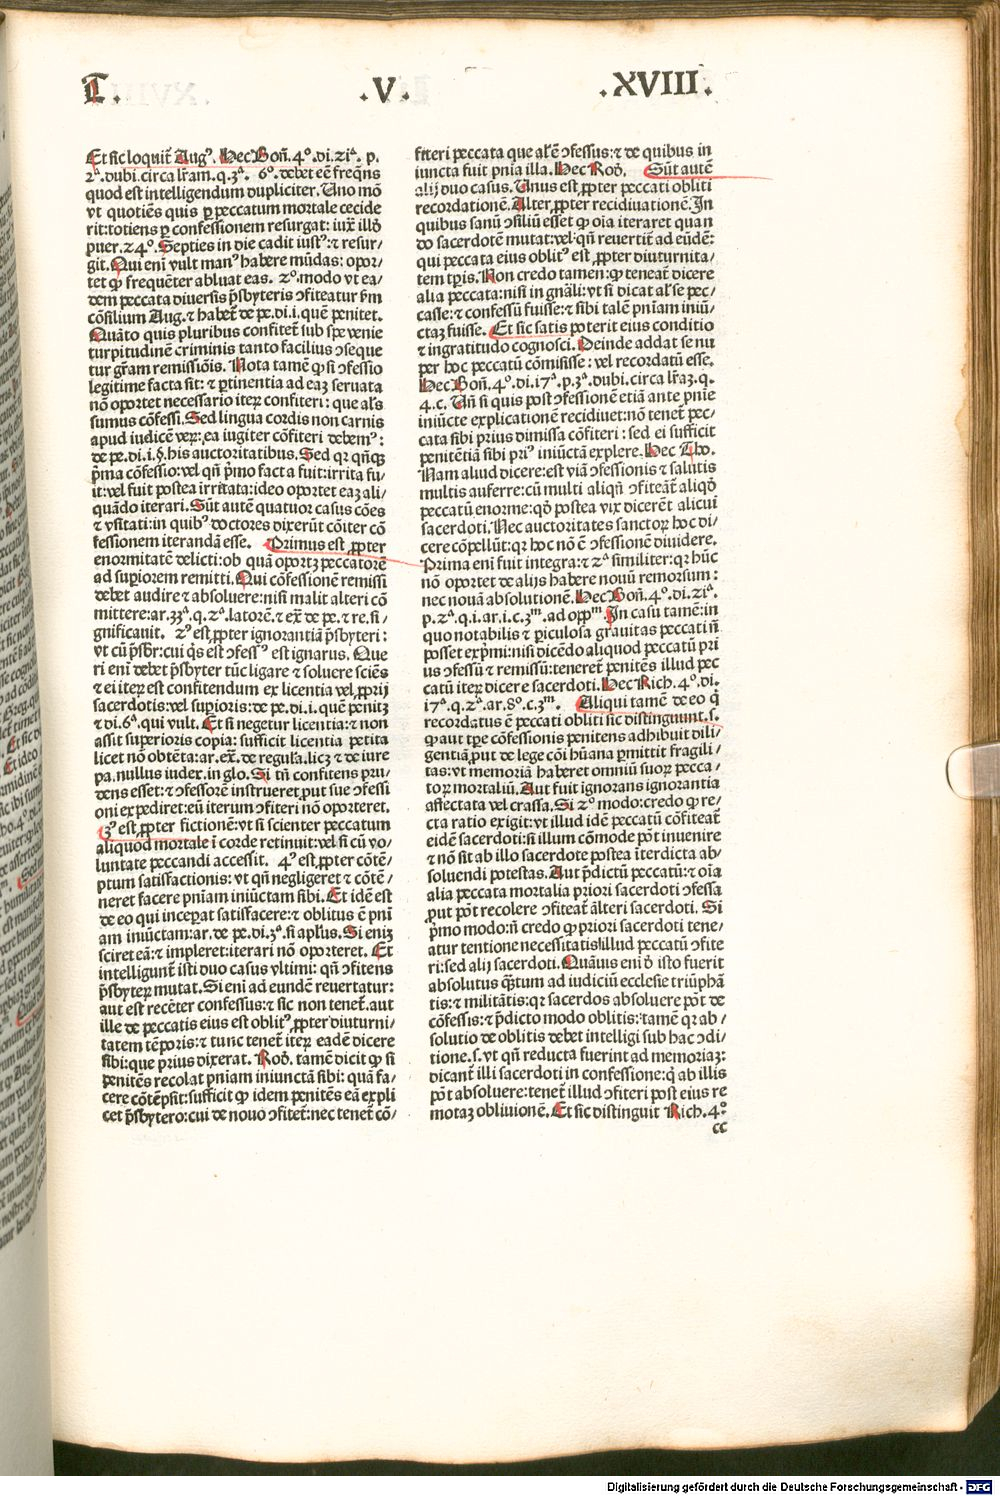 T. .V. .XVIII.
Et sic loquit᷑ Augꝰ. Hec Boñ. 4º. di. 21ª. p.
2ª. dubi. circa lr̃am. q. 3ª. 6º. debet eẽ freq̃ns
quod est intelligendum dupliciter. Uno mõ
vt quotiẽs quis ꝑ peccatum mortale cecide
rit: totiens ꝑ confessionem resurgat: iux̃ illd̃
ꝓuer. 24º. Septies in die cadit iustꝰ: ⁊ resur/
git. Qui eni vult manꝰ habere mũdas: opor/
tet ꝙ frequẽter abluat eas. 2º. modo vt ea/
dem peccata diuersis p̃sbyteris ꝯfiteatur ẜm
cõsilium Aug. ⁊ habet᷑ de pe. di. i. quẽ penitet.
Quãto quis pluribus confitet᷑ sub spe venie
turpitudinẽ criminis tanto facilius ꝯseque
tur gr̃am remissiõis. Nota tamẽ ꝙ si ꝯfessio
legitime facta sit: ⁊ ꝑtinentia ad eaꝫ seruata
nõ oportet necessario iteꝝ confiteri: que al̃s
sumus cõfessi. Sed lingua cordis non carnis
apud iudicẽ veꝝ: ea iugiter cõfiteri debemꝰ:
de pe. di. i. §. his auctoritatibus. Sed qꝛ qñqꝫ
p̃ma cõfessio: vel qñ p̃mo facta fuit: irrita fu/
it: vel fuit postea irritata: ideo oportet eaꝫ ali/
quãdo iterari. Sũt autẽ quatuor casus cões
⁊ vsitati: in quibꝰ doctores dixerũt cõiter cõ
fessionem iterandã esse. Primus est ꝓpter
enormitatẽ delicti: ob quã oportꝫ peccatorẽ
ad suꝑiorem remitti. Qui cõfessionẽ remissi
debet audire ⁊ absoluere: nisi malit alteri cõ
mittere: ar. 33ª. q. 2ª. latorẽ. ⁊ ex̃ de pe. ⁊ re. si/
gnificauit. 2ꝰ est ꝓpter ignorantiã p̃sbyteri:
vt cũ p̃sbr̃: cui q̃s est ꝯfessꝰ est ignarus. Que
ri eni debet p̃sbyter tũc ligare ⁊ soluere sciẽs
⁊ ei iteꝝ est confitendum ex licentia vel ꝓprij
sacerdotis: vel suꝑioris: de pe. di. i. quẽ penitꝫ
⁊ di. 6ª. qui vult. Et si negetur licentia: ⁊ non
assit superioris copia: sufficit licentia petita
licet nõ obtẽta: ar. ex̃. de regul̃a. licꝫ ⁊ de iure
pa. nullus iudex. in glo. Si tñ confitens pru/
dens esset: ⁊ ꝯfessorẽ instrueret ꝓut sue ꝯfessi
oni expediret: eũ iterum ꝯfiteri nõ oporteret.
3ꝰ est ꝓpter fictionẽ: vt si scienter peccatum
aliquod mortale ĩ corde retinuit: vel si cũ vo/
luntate peccandi accessit. 4ꝰ est ꝓpter cõtẽ/
ptum satisfactionis: vt qñ negligeret ⁊ cõtẽ/
neret facere pniam iniũctam sibi. Et idẽ est
de eo qui inceꝑat satisfacere: ⁊ oblitus ẽ pni
am iniũctam: ar. de pe. di. 3ª. si apl̃us. Si eniꝫ
sciret eã: ⁊ impleret: iterari nõ oporteret. Et
intelligunt᷑ isti duo casus vltimi: qñ ꝯfitens
p̃sbyteꝝ mutat. Si eni ad eundẽ reuertatur:
aut est recẽter confessus: ⁊ sic non tenet᷑. aut
ille de peccatis eius est oblitꝰ ꝓpter diuturni/
tatem tẽporis: ⁊ tunc tenet᷑ iteꝝ eadẽ dicere
sibi: que prius dixerat. Rob̃. tamẽ dicit ꝙ si
penitẽs recolat pniam iniunctã sibi: quã fa/
cere cõtẽpsit: sufficit ꝙ idem penitẽs eã expli
cet p̃sbytero: cui de nouo ꝯfitet᷑: nec tenet᷑ cõ/
fiteri peccata que al̃r ẽ ꝯfessus: ⁊ de quibus in
iuncta fuit pnia illa. Hec Rob̃. Sũt autẽ
alij duo casus. Unus est ꝓpter peccati obliti
recordationẽ. Alter ꝓpter recidiuationẽ. In
quibus sanũ ꝯsiliũ esset ꝙ oia iteraret quan
do sacerdotẽ mutat: vel qñ reuertit᷑ ad eũdẽ:
qui peccata eius oblitꝰ est ꝓpter diuturnita/
tem tꝑis. Non credo tamen: ꝙ teneat᷑ dicere
alia peccata: nisi in gñali: vt si dicat al̃s se pec/
casse: ⁊ confessũ fuisse: ⁊ sibi talẽ pniam iniũ/
ctaꝫ fuisse. Et sic satis poterit eius conditio
⁊ ingratitudo cognosci. Deinde addat se nu
per hoc peccatũ cõmisisse: vel recordatũ esse.
Hec Boñ. 4º. di. 17ª. p. 3ª. dubi. circa lr̃aꝫ. q.
4. c. Uñ si quis post ꝯfessionẽ etiã ante pnie
iniũcte explicationẽ recidiuet: nõ tenet᷑ pec/
cata sibi prius dimissa cõfiteri: sed ei sufficit
penitẽtiã sibi priꝰ iniũctã explere. Hec Tho.
Nam aliud dicere: est viã ꝯfessionis ⁊ salutis
multis auferre: cũ multi aliqñ ꝯfiteãt᷑ aliqd̃
peccatũ enorme: qd̃ postea vix dicerẽt alicui
sacerdoti. Nec auctoritates sanctoꝝ hoc di/
cere cõpellũt: qꝛ hoc nõ ẽ ꝯfessionẽ diuidere.
Prima eni fuit integra: ⁊ 2ª similiter: qꝛ hũc
nõ oportet de alijs habere nouũ remorsum:
nec nouã absolutionẽ. Hec Boñ. 4º. di. 21ª.
p. 2ª. q. i. ar. i. c. 3ᵐ. ad opꝑᵐ. In casu tamẽ: in
quo notabilis ⁊ ꝑiculosa grauitas peccati ñ
posset exp̃mi: nisi dicẽdo aliquod peccatũ pri
us ꝯfessũ ⁊ remissũ: teneret᷑ penitẽs illud pec
catũ iteꝝ dicere sacerdoti. Hec Rich. 4º. di.
17ª. q. 2ª. ar. 8º. c. 3ᵐ. Aliqui tamẽ de eo q̃
recordatus ẽ peccati obliti sic distinguunt. s.
ꝙ aut tꝑe cõfessionis penitens adhibuit dili/
gentiã ꝓut de lege cõi hũana ꝑmittit fragili/
tas: vt memoriã haberet omniũ suoꝝ pecca/
toꝝ mortaliũ. Aut fuit ignorans ignorantia
affectata vel crassa. Si 2º modo: credo ꝙ re/
cta ratio exigit: vt illud idẽ peccatũ cõfiteat᷑
eidẽ sacerdoti: si illum cõmode põt inuenire
⁊ nõ sit ab illo sacerdote postea ĩterdicta ab/
soluendi potestas. Aut p̃dictũ peccatũ: ⁊ oia
alia peccata mortalia priori sacerdoti ꝯfessa
ꝓut põt recolere ꝯfiteat᷑ ãlteri sacerdoti. Si
p̃mo modo: ñ credo ꝙ priori sacerdoti tene/
atur tentione necessitatis illud peccatũ ꝯfite
ri: sed alij sacerdoti. Quãuis eni d̃ isto fuerit
absolutus q̃ꝫtum ad iudiciũ ecclesie triũphã
tis: ⁊ militãtis: qꝛ sacerdos absoluere põt de
cõfessis: ⁊ p̃dicto modo oblitis: tamẽ qꝛ ab/
solutio de oblitis debet intelligi sub hac ꝯdi/
tione. s. vt qñ reducta fuerint ad memoriaꝫ:
dicant᷑ illi sacerdoti in confessione: q̃ ab illis
põt absoluere: tenet᷑ illud ꝯfiteri post eius re
motaꝫ obliuionẽ. Et sic distinguit Rich. 4º
cc
Digitalisierung gefördert durch die Deutsche Forschungsgemeinschaft - DFG